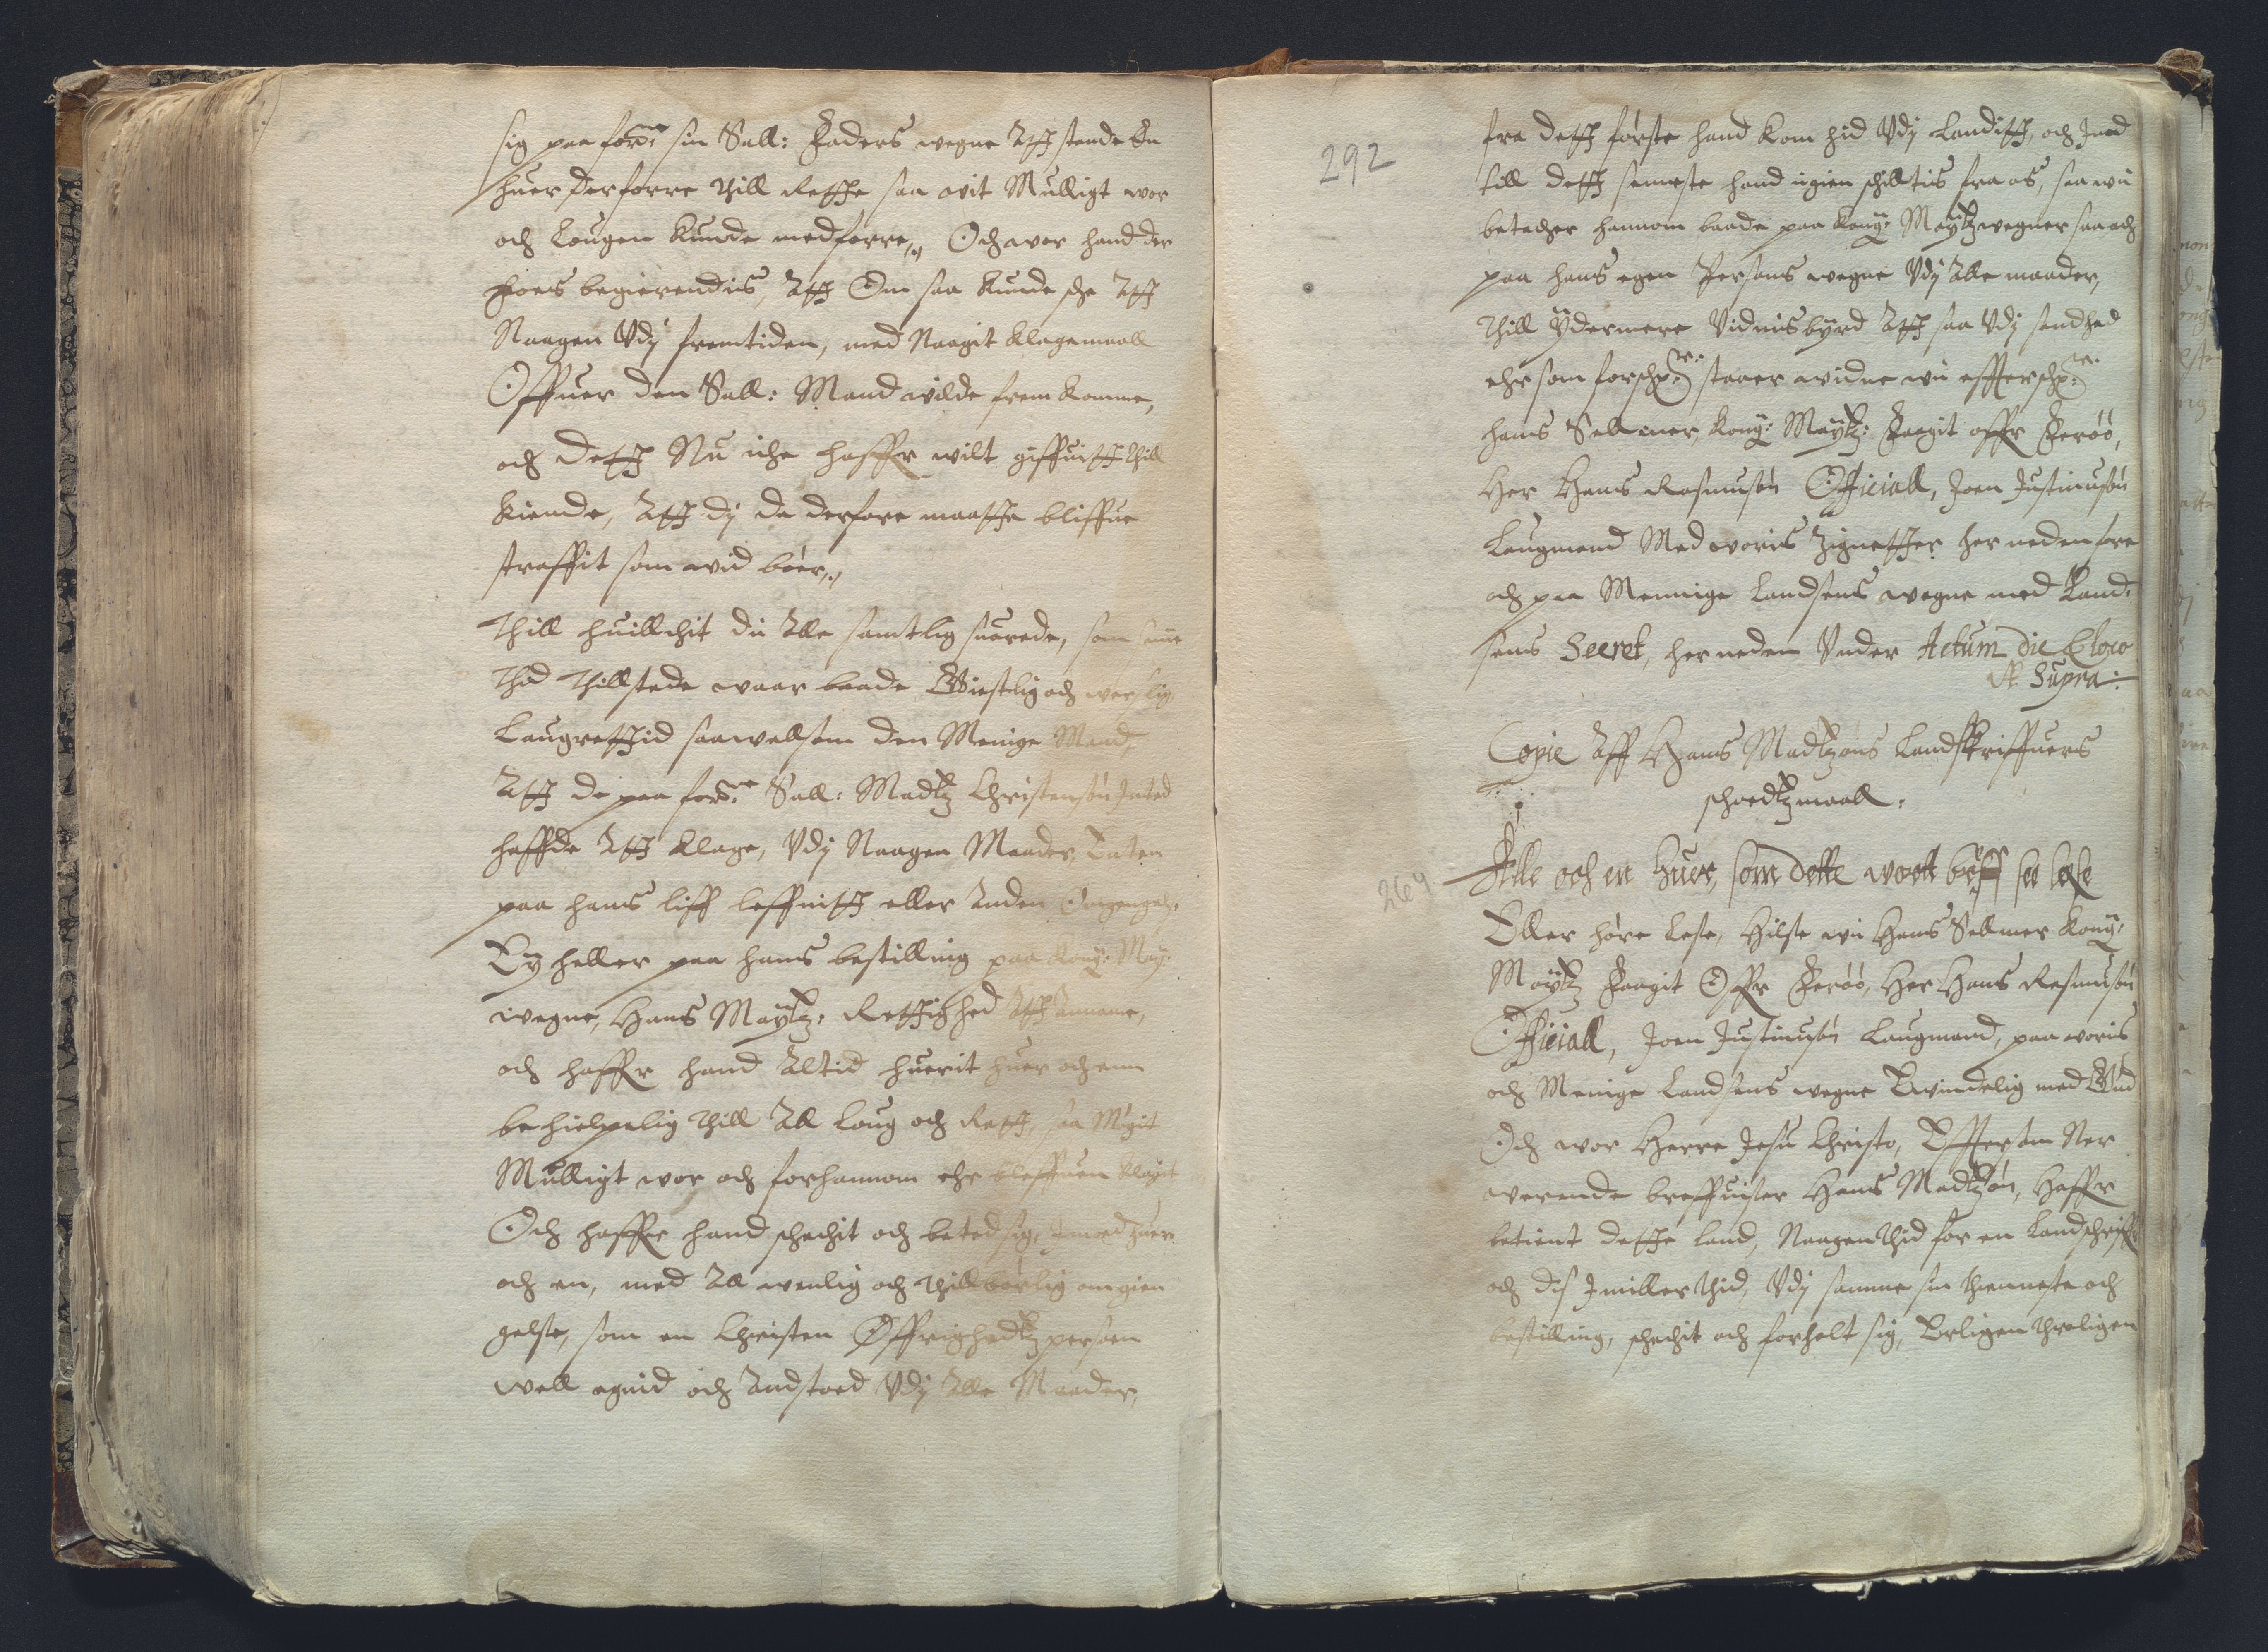 sig paa forne: sin Sall: Faders wegne Att stande En
huer derforre thill Rette saa vit Mulligt wor
och Lougen kunde medførre, Och wor hand der
hoes begierendis, Att Om saa kunde ske Att
Naagen Vdj fremtiden, med Naagit klagemaall
Offuer den Sall: Mand wilde frem komme,
och dett Nu iche haffr wilt giffuitt thill
kiende, Att dj da derfore maatte bliffue
straffit som wid bøer,
Thill huilchit di Alle samtlig suorede, som
thid thillstede waar baade Giestlig och werslig
Laugrettid saawellsom den Menige Mand,
Att de paa forne: Sall: Madtz Christensøn Inted
haffde Att klage, Vdj Naagen Maader, Enten
paa hans liff leffnitt eller Anden Omgengels.
Ey heller paa hans bestilling paa Kong: May:
wegne, Hans Maytz: Rettighed Att Annamme,
och haffr hand Altid huerit huer och enn
behielpelig thill All Loug och Rett, saa Migit
Mulligt wor och forhannom ehr bleffuen klagit
Och haffr hand schechit och beted sig, Imod huer
och en, med All wenlig och thillbørlig omgien
gelse, som en Christen Øffrighedtz persoen
well egnid och Andstoed Vdj Alle Maader,
292
fra dett første hand kom hid Vdj Landitt, och Ind
till dett seneste hand igien schilltis fra os, saa wii
betacher hannom baade paa Kong: Maytz wegner saa och
paa hans egen Persons wegne Vdj Alle maader,
Thill Ydermere Vidnisbyrd Att saa Vdj sandhed
ehr som forschr: staaer widne wii effterschr:
hans Sellmer, Kong: Maytz: Faagit offr Ferøø,
Her Hans Rasmusøn Official, Joen Justinusøn
Laugmand Med woris Zignetter her neden fore
och paa Mennige Landsens wegne med Land-
sens Secret, her neden Vnder Actum die Et loco
vt Supra:
Copie Aff Hans Madtzøns Landskriffuers
schoedtzmaall,
264
Alle och en huer, som dette wortt breff see lese
Eller høre Lese, Hilse wii Hans Sellmer Kong:
Maytz Faagit Offr Ferøø, Her Hans Rasmusøn
Official, Joen Justinusøn Laugmand, paa woris
och Menige Landsens wegne Ewindelig med Gud
Och wor Herre Jesu Christo, Effterson Ner
werende breffuiser Hans Madtzøn, Haffr
betient dette land, Naagen thid for en Landschriffr
och dis Imiller thid, Vdj samme sin thienneste och
bestilling, schechit och forholt sig, Erligen throligen